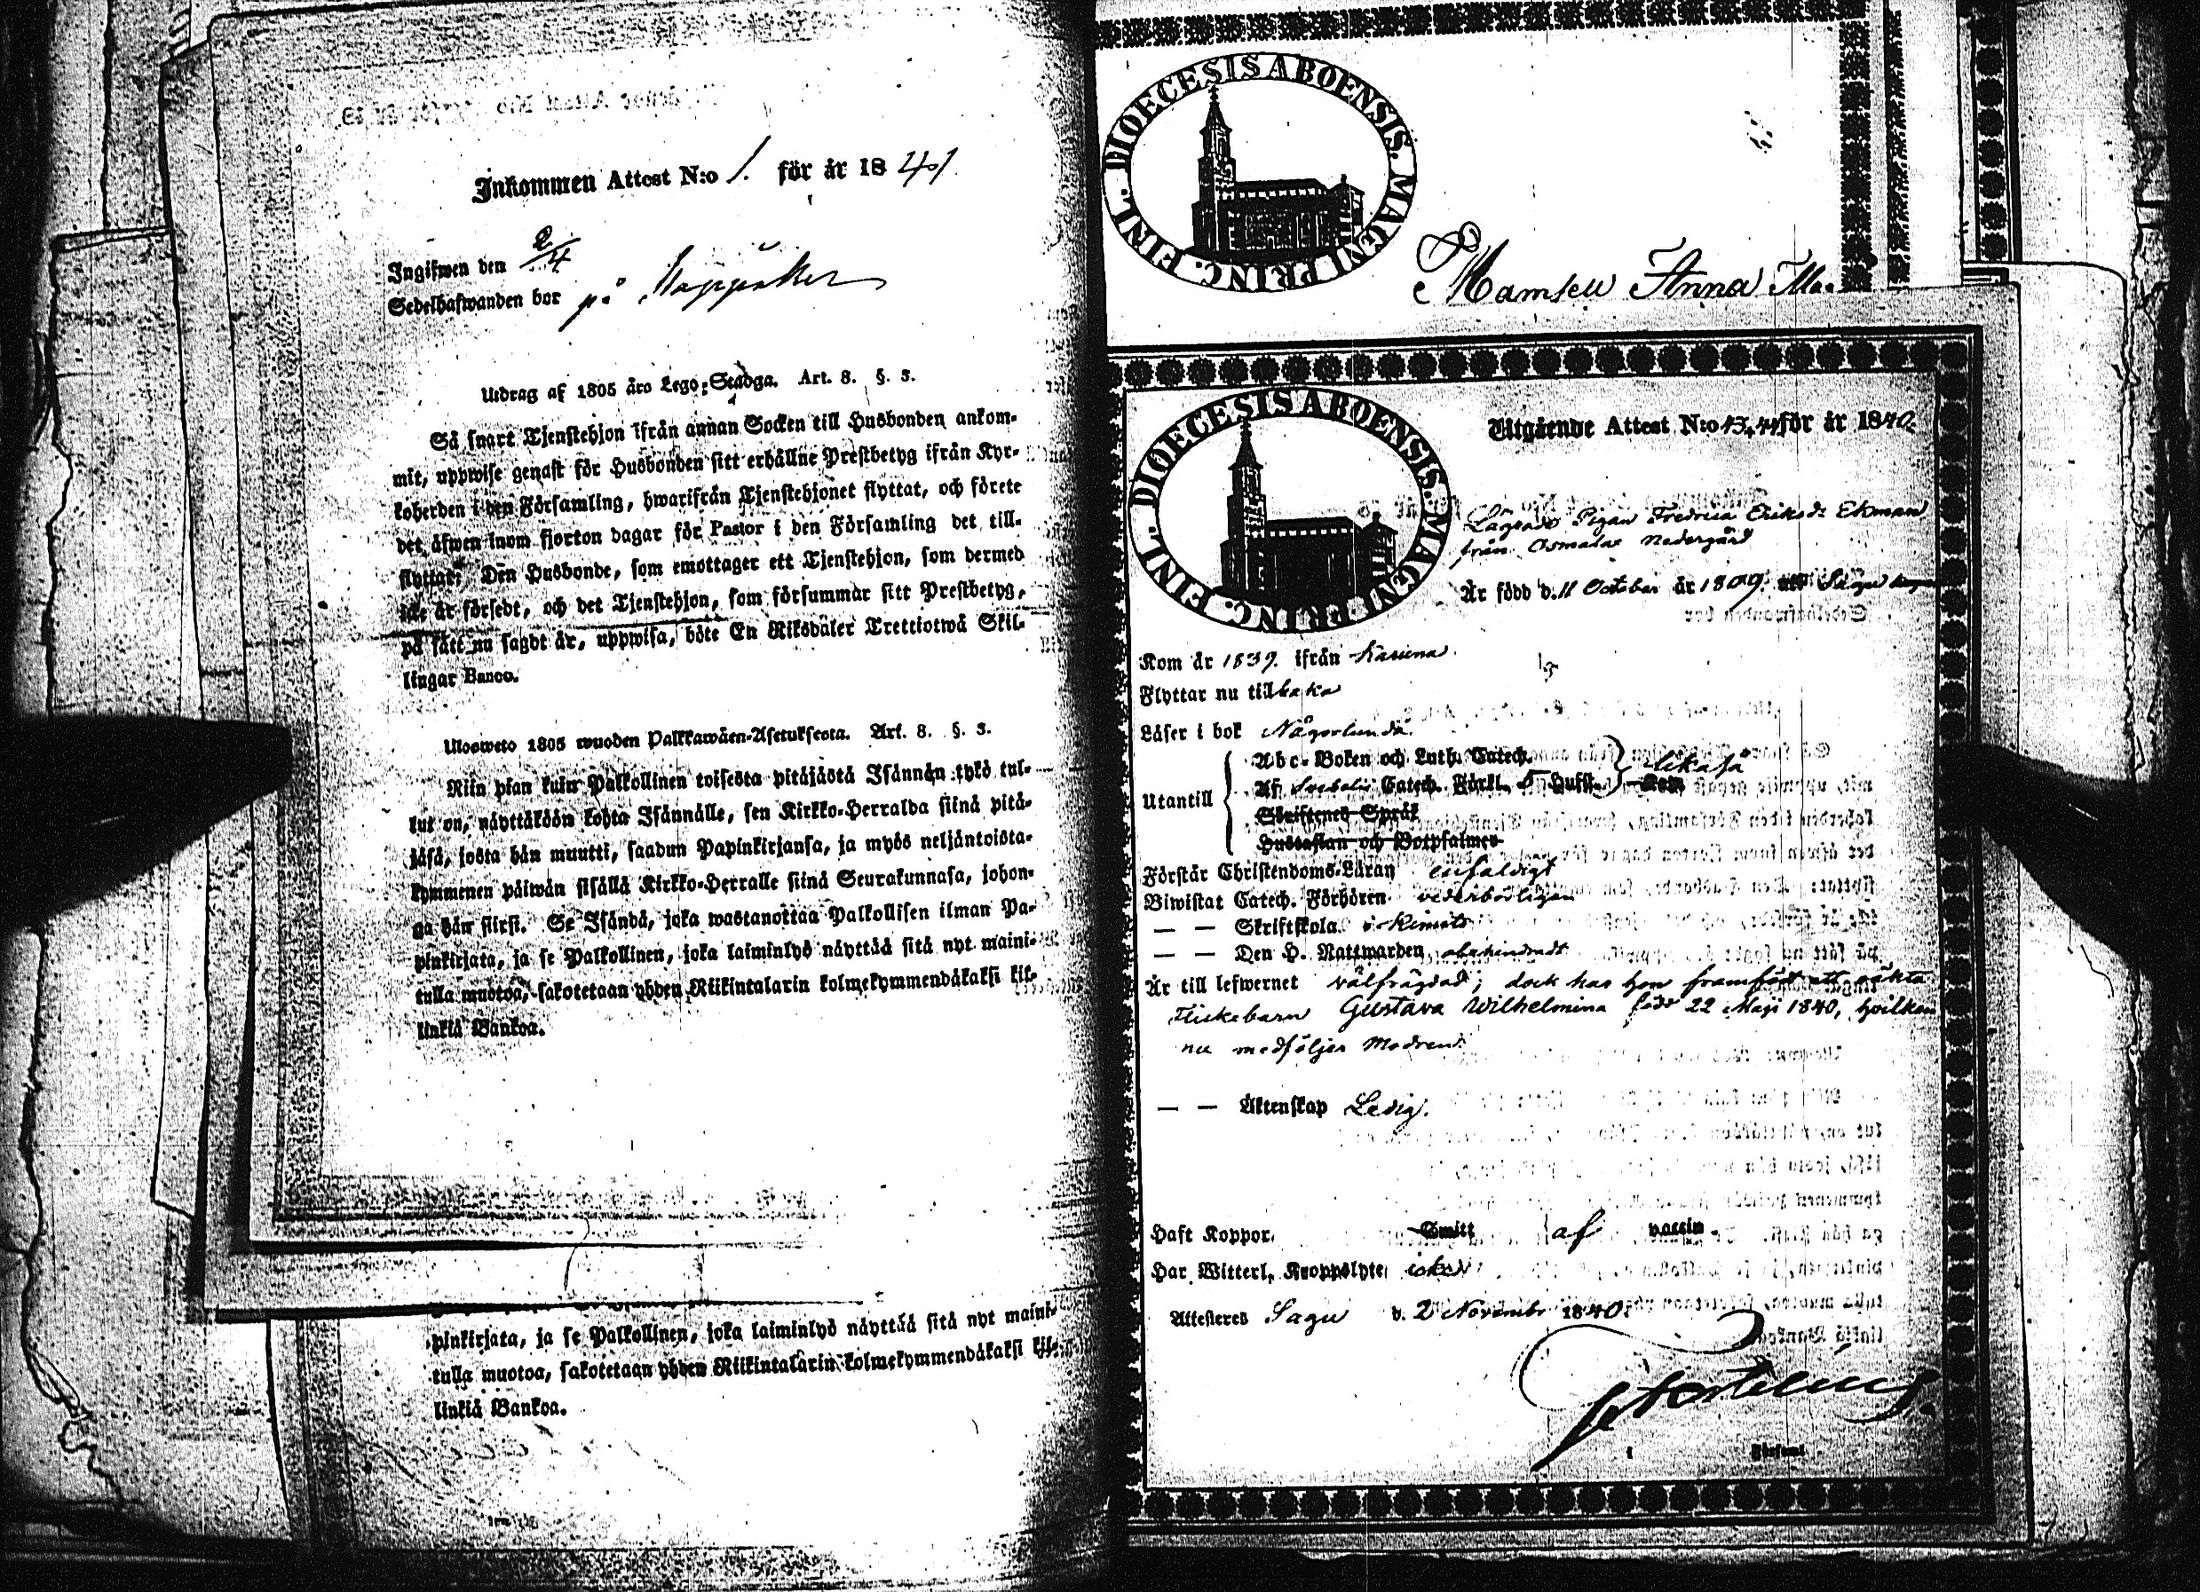 Inkommen Attest N:o 1. för år 1841.
Ingifwen den 2/4
Sedelhafwanden bor på
Utdrag af 1805 års Lego-Stadga. Art. 8. §. 3.
Så snart Tjenstehjon ifrån annan Socken till Husbonden ankom-
mit, uppwise genast för Husbonden sitt erhållne Prestbetyg ifrån Kyr-
koherden i den Församling, hwarifrån Tjenstehjonet flyttat, och förete
det äfwen inom fjorton dagar för Pastor i den Församling det till-
flyttat. Den Husbonde, som emottager ett Tjenstehjon, som dermed
icke är försedt, och det Tjenstehjon, som försummar sitt Prestbetyg,
på sätt nu sagdt är, uppwisa, böte En Riksdaler Trettiotwå Skil-
lingar Banco.
Ulosweto 1805 wuoden Palkkawäen-Asetuksesta. Art. 8. §. 3.
Niin pian kuin Palkollinen toisesta pitäjästä Isännän tykö tul-
lut on, näyttäköön kohta Isännälle, sen Kirkko-Herralda siinä pitä-
jäsä, josta hän muutti, saadun Papinkirjansa, ja myös neljäntoista-
kymmenen päiwän sisällä Kirkko-Herralle siinä Seurakunnasa, johon-
ga hän siirsi. Se Isändä, joka wastanottaa Palkollisen ilman Pa-
pinkirjata, ja se Palkollinen, joka laiminlyö näyttää sitä nyt maini-
tulla muotoa, sakotetaan yhden Riikintalarin kolmekymmendäkaksi kil-
linkiä Bankoa.
pinkirjata, ja se Palkollinen, joka laiminlyö näyttää sitä nyt maini-
tulla muotoa, sakotetaan yhden Riikintalarin kolmekymmendäkaksi kil-
linkiä Bankoa.
FINL. DIOECESIS ABOENSIS. MAGNI PRINC.
Mamsell Anna Ma
FINL. DIOECESIS ABOENSIS. MAGNI PRINC.
Utgående Attest N:o 43, 44 för år 1840.
Pigan Fredrica Eriksd:r Ekman
från Osmalax Nedergård
Är född d. 11 October år 1809. uti Sagu
Kom år 1839. ifrån Karuna
Flyttar nu tillbaka
Läser i bok Någorlunda.
Utantill
Abc-Boken och Luth. Catech.
Af Svebelii Catech. Förkl. Hufst. likaså
Skriftenes Språk
Hustaflan och Botpsalmer
Förstår Christendoms-Läran enfaldigt
Biwistat Catech. Förhören vederbörligen
— — Skriftskola. i Kimito
— — Den H. Nattwarden obehindradt
Är till lefwernet välfrägdad; dock har hon framfödt ett oäkta
Flickebarn Gustava Wilhelmina född 22 Maji 1840, hvilken
nu medföljer Modren.
— — Äktenskap Ledig.
Haft Koppor. Smitt af vaccin
Har Witterl. Kroppslyte icke
Attesteres Sagu d. 2 November 1840.